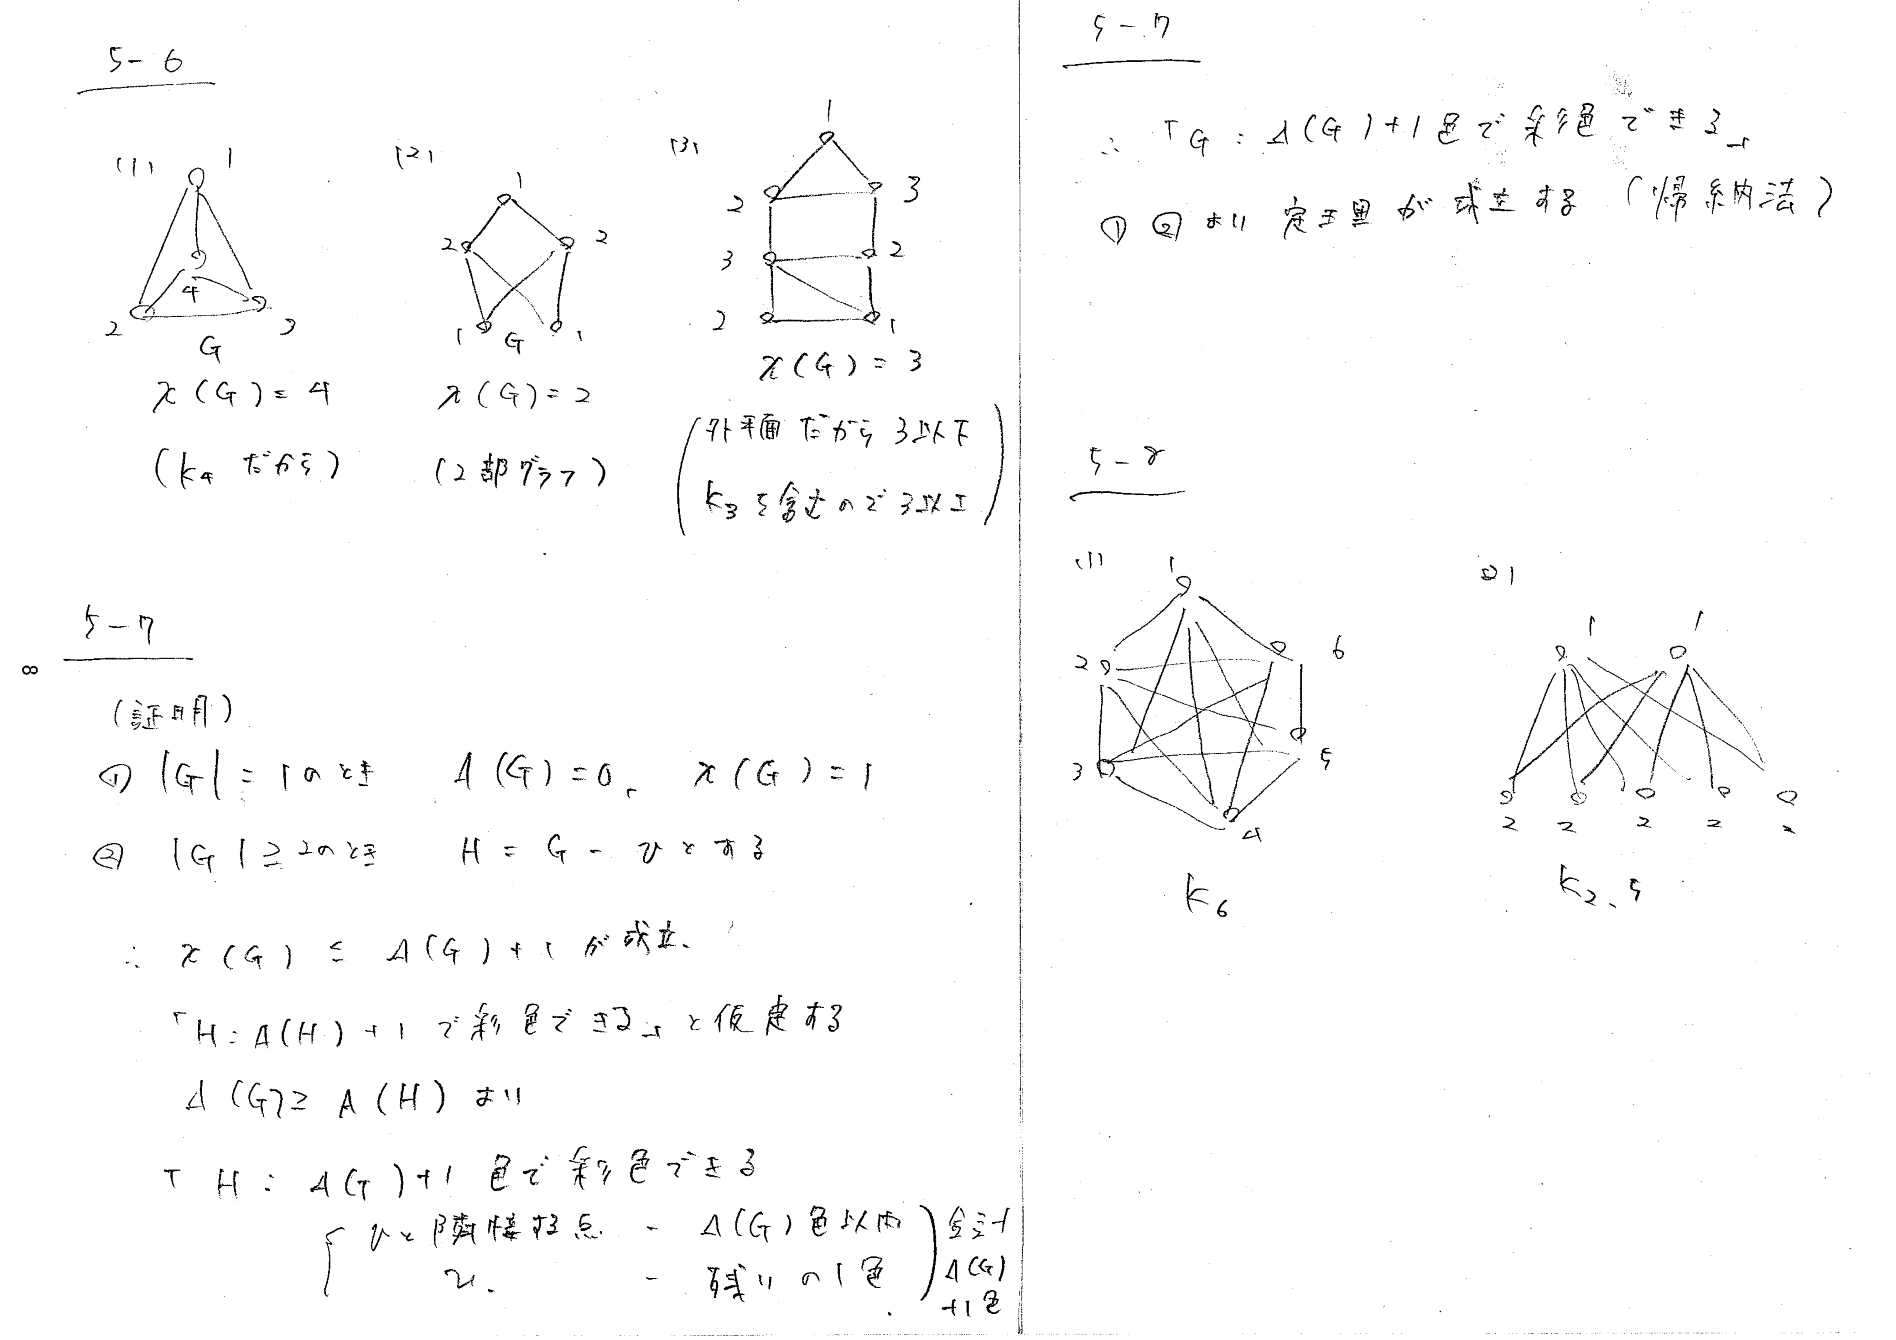 5-6
(1)
1
2
3
4
G
χ(G)=4
(K4 だから)
(2)
1
2
2
1
G
1
χ(G)=2
(2部グラフ)
(3)
1
2
3
3
2
2
1
χ(G)=3
(外平面だから3以下
K3を含むので3以上)
5-7
8
(証明)
① |G|=1のとき Δ(G)=0, χ(G)=1
② |G|≧2のとき H=G-vとする
∴ χ(G)≦Δ(G)+1が成立.
「H:Δ(H)+1で彩色できる」と仮定する
Δ(G)≧Δ(H)より
「H:Δ(G)+1色で彩色できる
vと隣接する点 - Δ(G)色以内
v. - 残りの1色
合計
Δ(G)
+1色
5-7
∴「G:Δ(G)+1色で彩色できる」
①②より定理が成立する(帰納法)
5-8
(1)
1
2
6
3
5
4
K6
(2)
1
1
2
2
2
2
2
K2,5